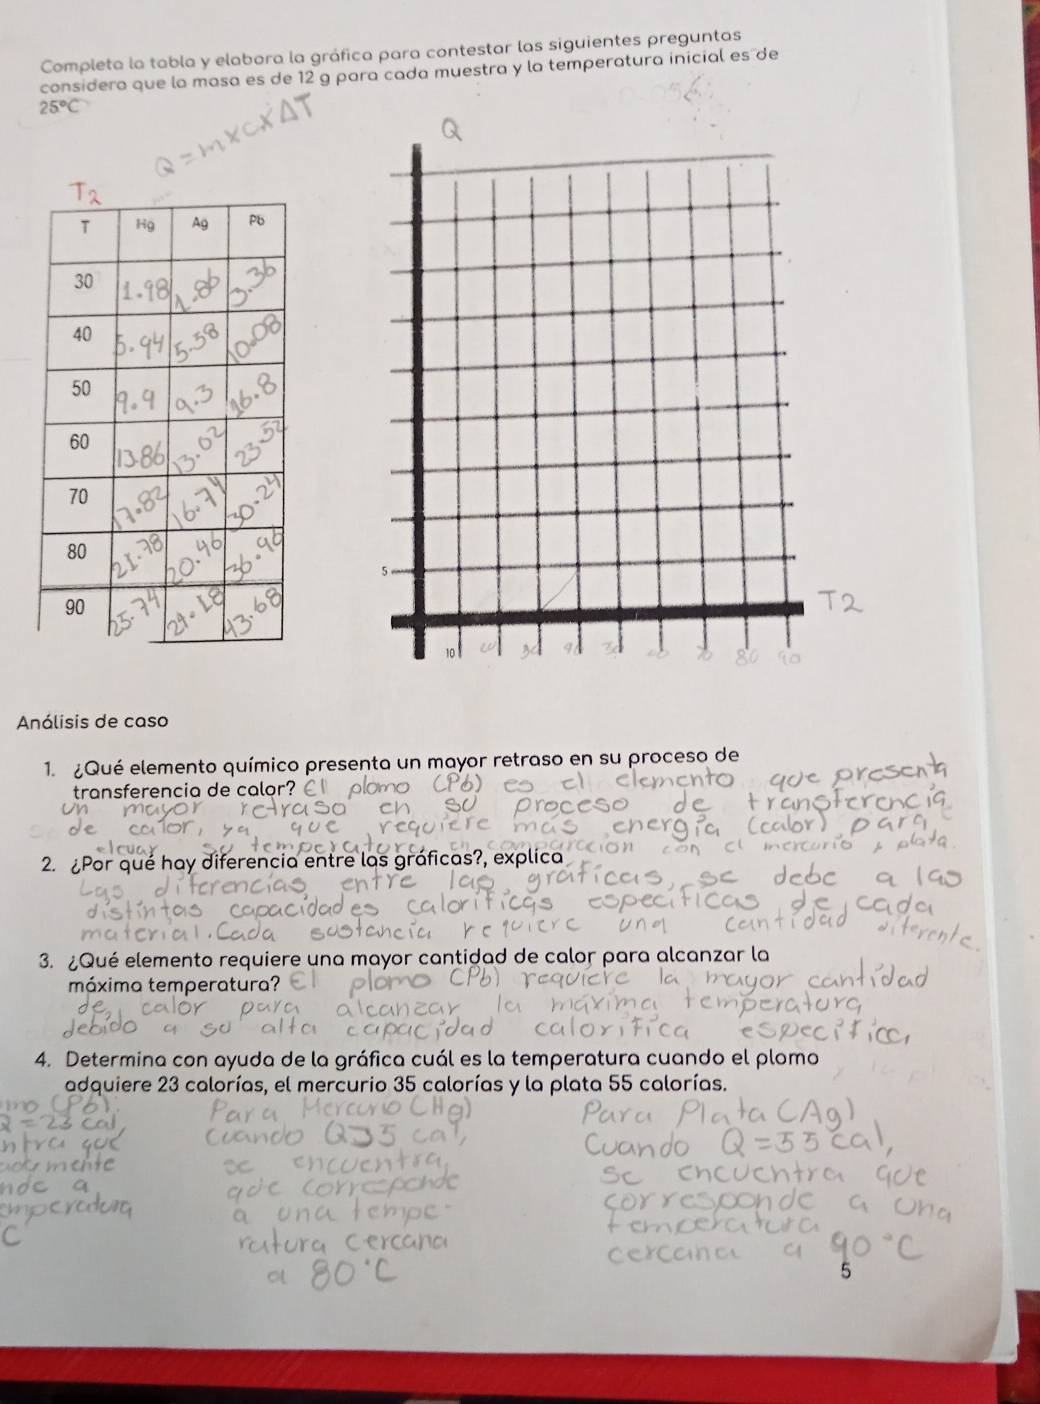 Completa la tabla y elabora la gráfica para contestar las siguientes preguntas
considera que la masa es de 12 g para cada muestra y la temperatura inicial es de
25°C
Q = m x c x ΔT
T2
T Hg Ag Pb
30 1.98 1.86 3.36
40 5.94 5.58 10.08
50 9.9 9.3 16.8
60 13.86 13.02 23.52
70 17.82 16.74 30.24
80 21.78 20.46 36.96
90 25.74 24.18 43.68
Q
5
T2
10 70 80 90
Análisis de caso
1. ¿Qué elemento químico presenta un mayor retraso en su proceso de
transferencia de calor? El plomo (Pb) es el elemento que presenta
un mayor retraso en su proceso de transferencia
de calor, ya que requiere más energía (calor) para
elevar su temperatura en comparación con el mercurio y plata.
2. ¿Por qué hay diferencia entre las gráficas?, explica
Las diferencias entre las gráficas, se debe a las
distintas capacidades caloríficas específicas de cada
material. Cada sustancia requiere una cantidad diferente.
3. ¿Qué elemento requiere una mayor cantidad de calor para alcanzar la
máxima temperatura? El plomo (Pb) requiere la mayor cantidad
de calor para alcanzar la maxima temperatura
debido a su alta capacidad calorifica especifica
4. Determina con ayuda de la gráfica cuál es la temperatura cuando el plomo
adquiere 23 calorías, el mercurio 35 calorías y la plata 55 calorías.
mo (Pb).
Q = 23 cal,
ntra que
mente
nde a
emperatura
C
Para Mercurio (Hg)
Cuando Q 35 cal,
se encuentra
que corresponde
a una tempe-
ratura cercana
a 80°C
Para Plata (Ag)
Cuando Q = 55 cal,
se encuentra que
corresponde a una
temperatura
cercana a 90°C
5